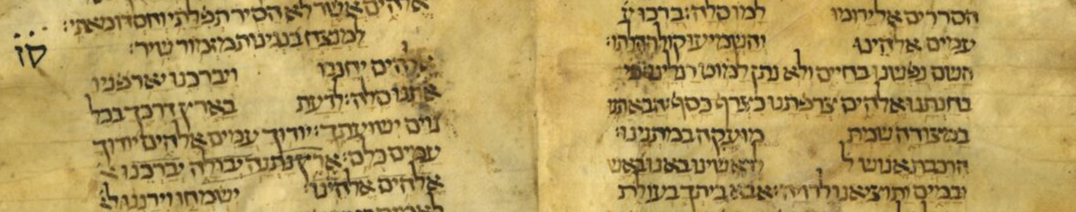 הסררים אל ירומו למו סלה: ברכו ע
עמים אלהינו והשמיעו קול תהלתו:
השם נפשנו בחיים ולא נתן למוט רגלינו: כי
בחנתנו אלהים צרפתנו כצרף כסף: הבאתנו
במצודה שמת מועקה במתנינו:
הרכבת אנוש ל לראשינו באנו באש
ובמים ותוציאנו לרויה: אבא ביתך בעולת
אלהים אשר לא הסיר תפלתי וחסדו מאתי:
סז
למנצח בנגינות מזמור שיר:
אלהים יחננו ויברכנו יאר פניו
אתנו סלה: לדעת בארץ דרכך בכל
גוים ישועתך: יודוך עמים אלהים יודוך
עמים כלם: ארץ נתנה יבולה יברכנו א
אלהים אלהינו: ישמחו וירננו ל